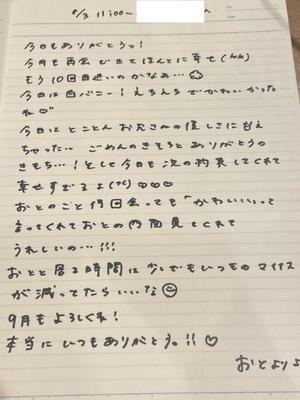 8/3 11:00〜
今日もありがとうっ!
今月も再会できてほんとに幸せ(*^^*)
もう10回目近いのかなあ…
今日は白バニー!えちえちでかわいかった
ね♡
今日はとことんお兄さんの優しさに甘え
ちゃった… ごめんのきもちとありがとうの
きもち…!そして今日も次の約束してくれて
幸せすぎるよ(;;)♡♡♡
おとのこと何回会っても「かわいい」って
言ってくれておとの内面見てくれて
うれしいの…!!!
おとと居る時間は少しでもいつものマイナス
が減ってたらいいな☺
9月もよろしくね!
本当にいつもありがとう。!! ♡
おとより♪